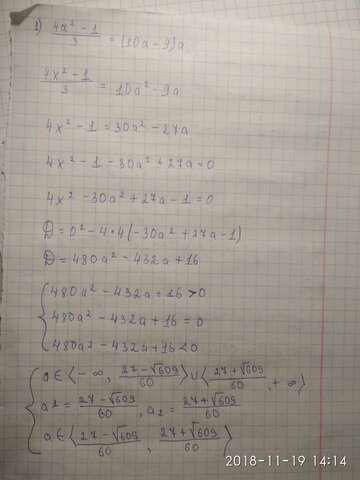 1) (4x² - 1)/3 = (10a - 9)a
(4x² - 1)/3 = 10a² - 9a
4x² - 1 = 30a² - 27a
4x² - 1 - 30a² + 27a = 0
4x² - 30a² + 27a - 1 = 0
D = 0² - 4·4(-30a² + 27a - 1)
D = 480a² - 432a + 16
{ 480a² - 432a + 16 > 0
480a² - 432a + 16 = 0
480a² - 432a + 16 < 0
{ a ∈ ⟨-∞, (27 - √609)/60⟩ ∪ ⟨(27 + √609)/60, +∞⟩
a1 = (27 - √609)/60, a2 = (27 + √609)/60
a ∈ ⟨(27 - √609)/60, (27 + √609)/60⟩
2018-11-19 14:14